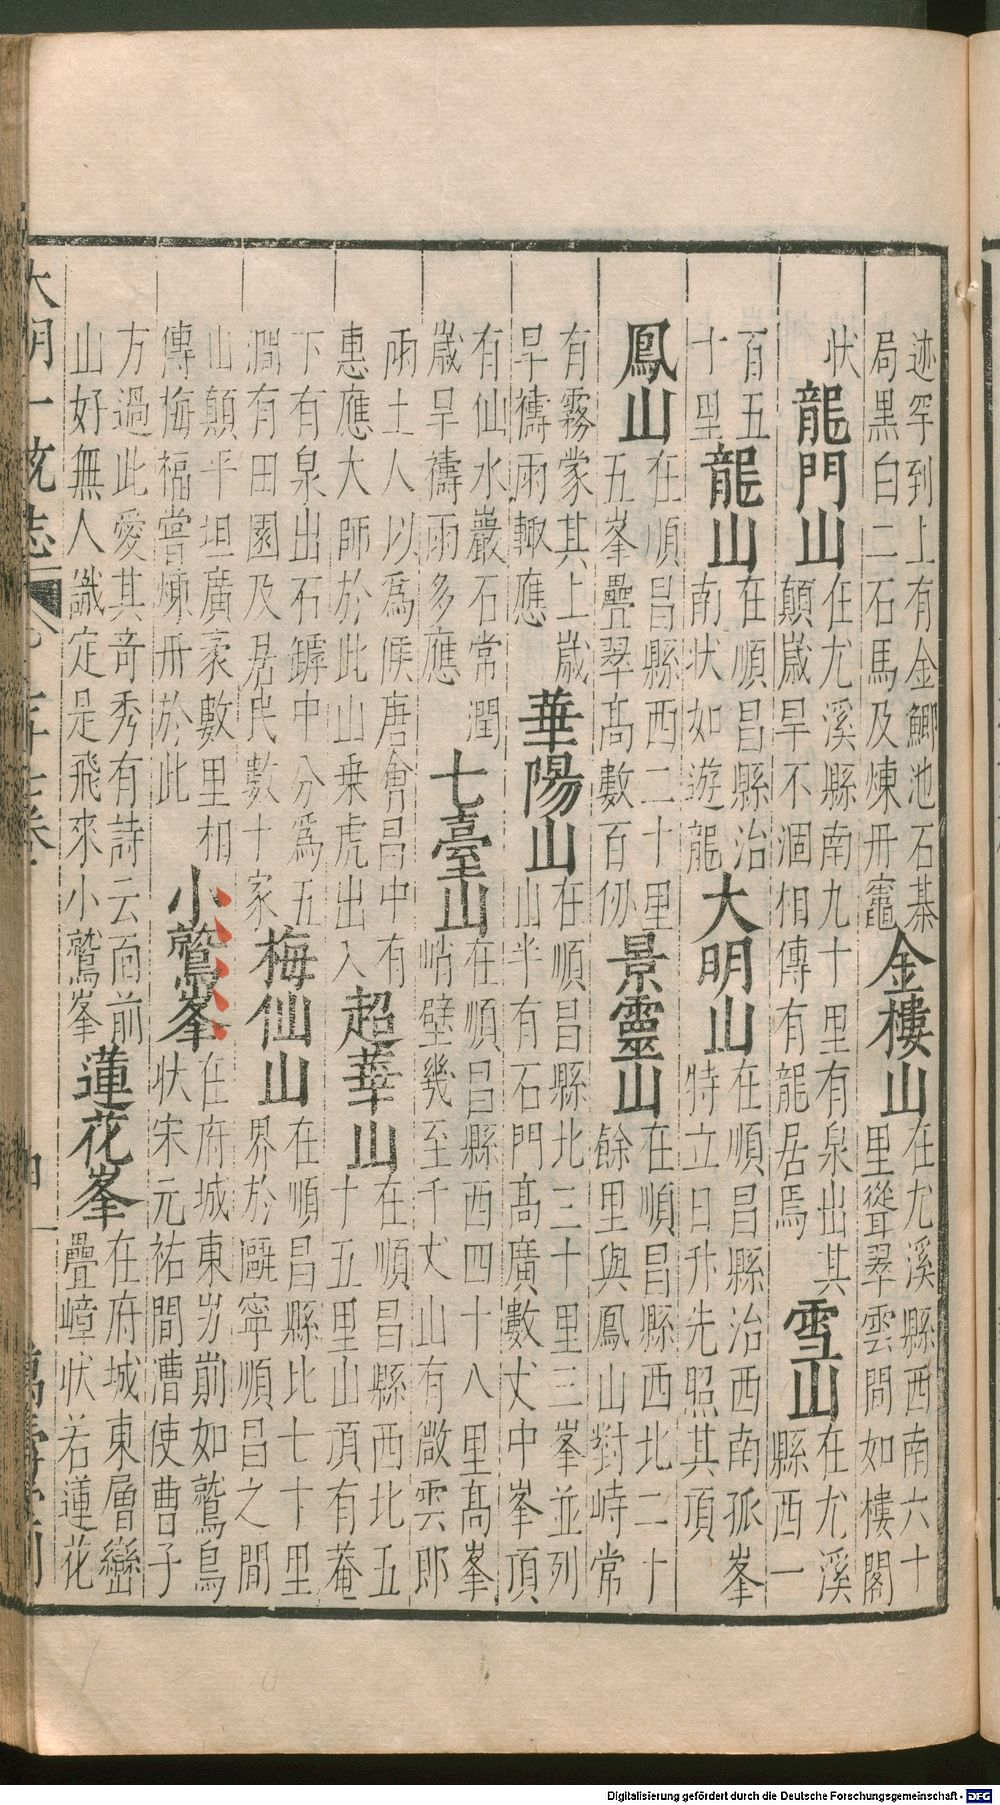 迹罕到上有金鯽池石棊
局黒白二石馬及煉丹竈
金樓山
在尤溪縣西南六十
里聳翠雲間如樓閣
状
龍門山
在尤溪縣南九十里有泉出其
顛歲旱不涸相傳有龍居焉
雪山
在尤溪
縣西一
百五
十里
龍山
在順昌縣治
南状如遊龍
大明山
在順昌縣治西南孤峯
特立日升先照其項
鳳山
在順昌縣西二十里
五峯疊翠髙數百仞
景靈山
在順昌縣西北二十
餘里與鳳山對峙常
有霧蒙其上歲
旱禱雨輙應
華陽山
在順昌縣北三十里三峯並列
山半有石門髙廣數丈中峯頂
有仙水巖石常潤
歲旱禱雨多應
七臺山
在順昌縣西四十八里髙峯
峭壁幾至千丈山有㪚雲即
雨土人以爲候唐會昌中有
惠應大師於此山乗虎出入
超華山
在順昌縣西北五
十五里山頂有菴
下有泉出石罅中分爲五
澗有田園及居民數十家
梅仙山
在順昌縣比七十里
界於甌寧順昌之間
山顛平坦廣袤數里相
傳梅福嘗煉丹於此
小鷲峯
在府城東岁崱如鷲鳥
状宋元祐間漕使曹子
方過此愛其竒秀有詩云面前
山好無人識定是飛來小鷲峯
蓮花峯
在府城東層巒
疊嶂状若蓮花
大明一统志
萬壽堂刊
Digitalisierung gefördert durch die Deutsche Forschungsgemeinschaft - DFG